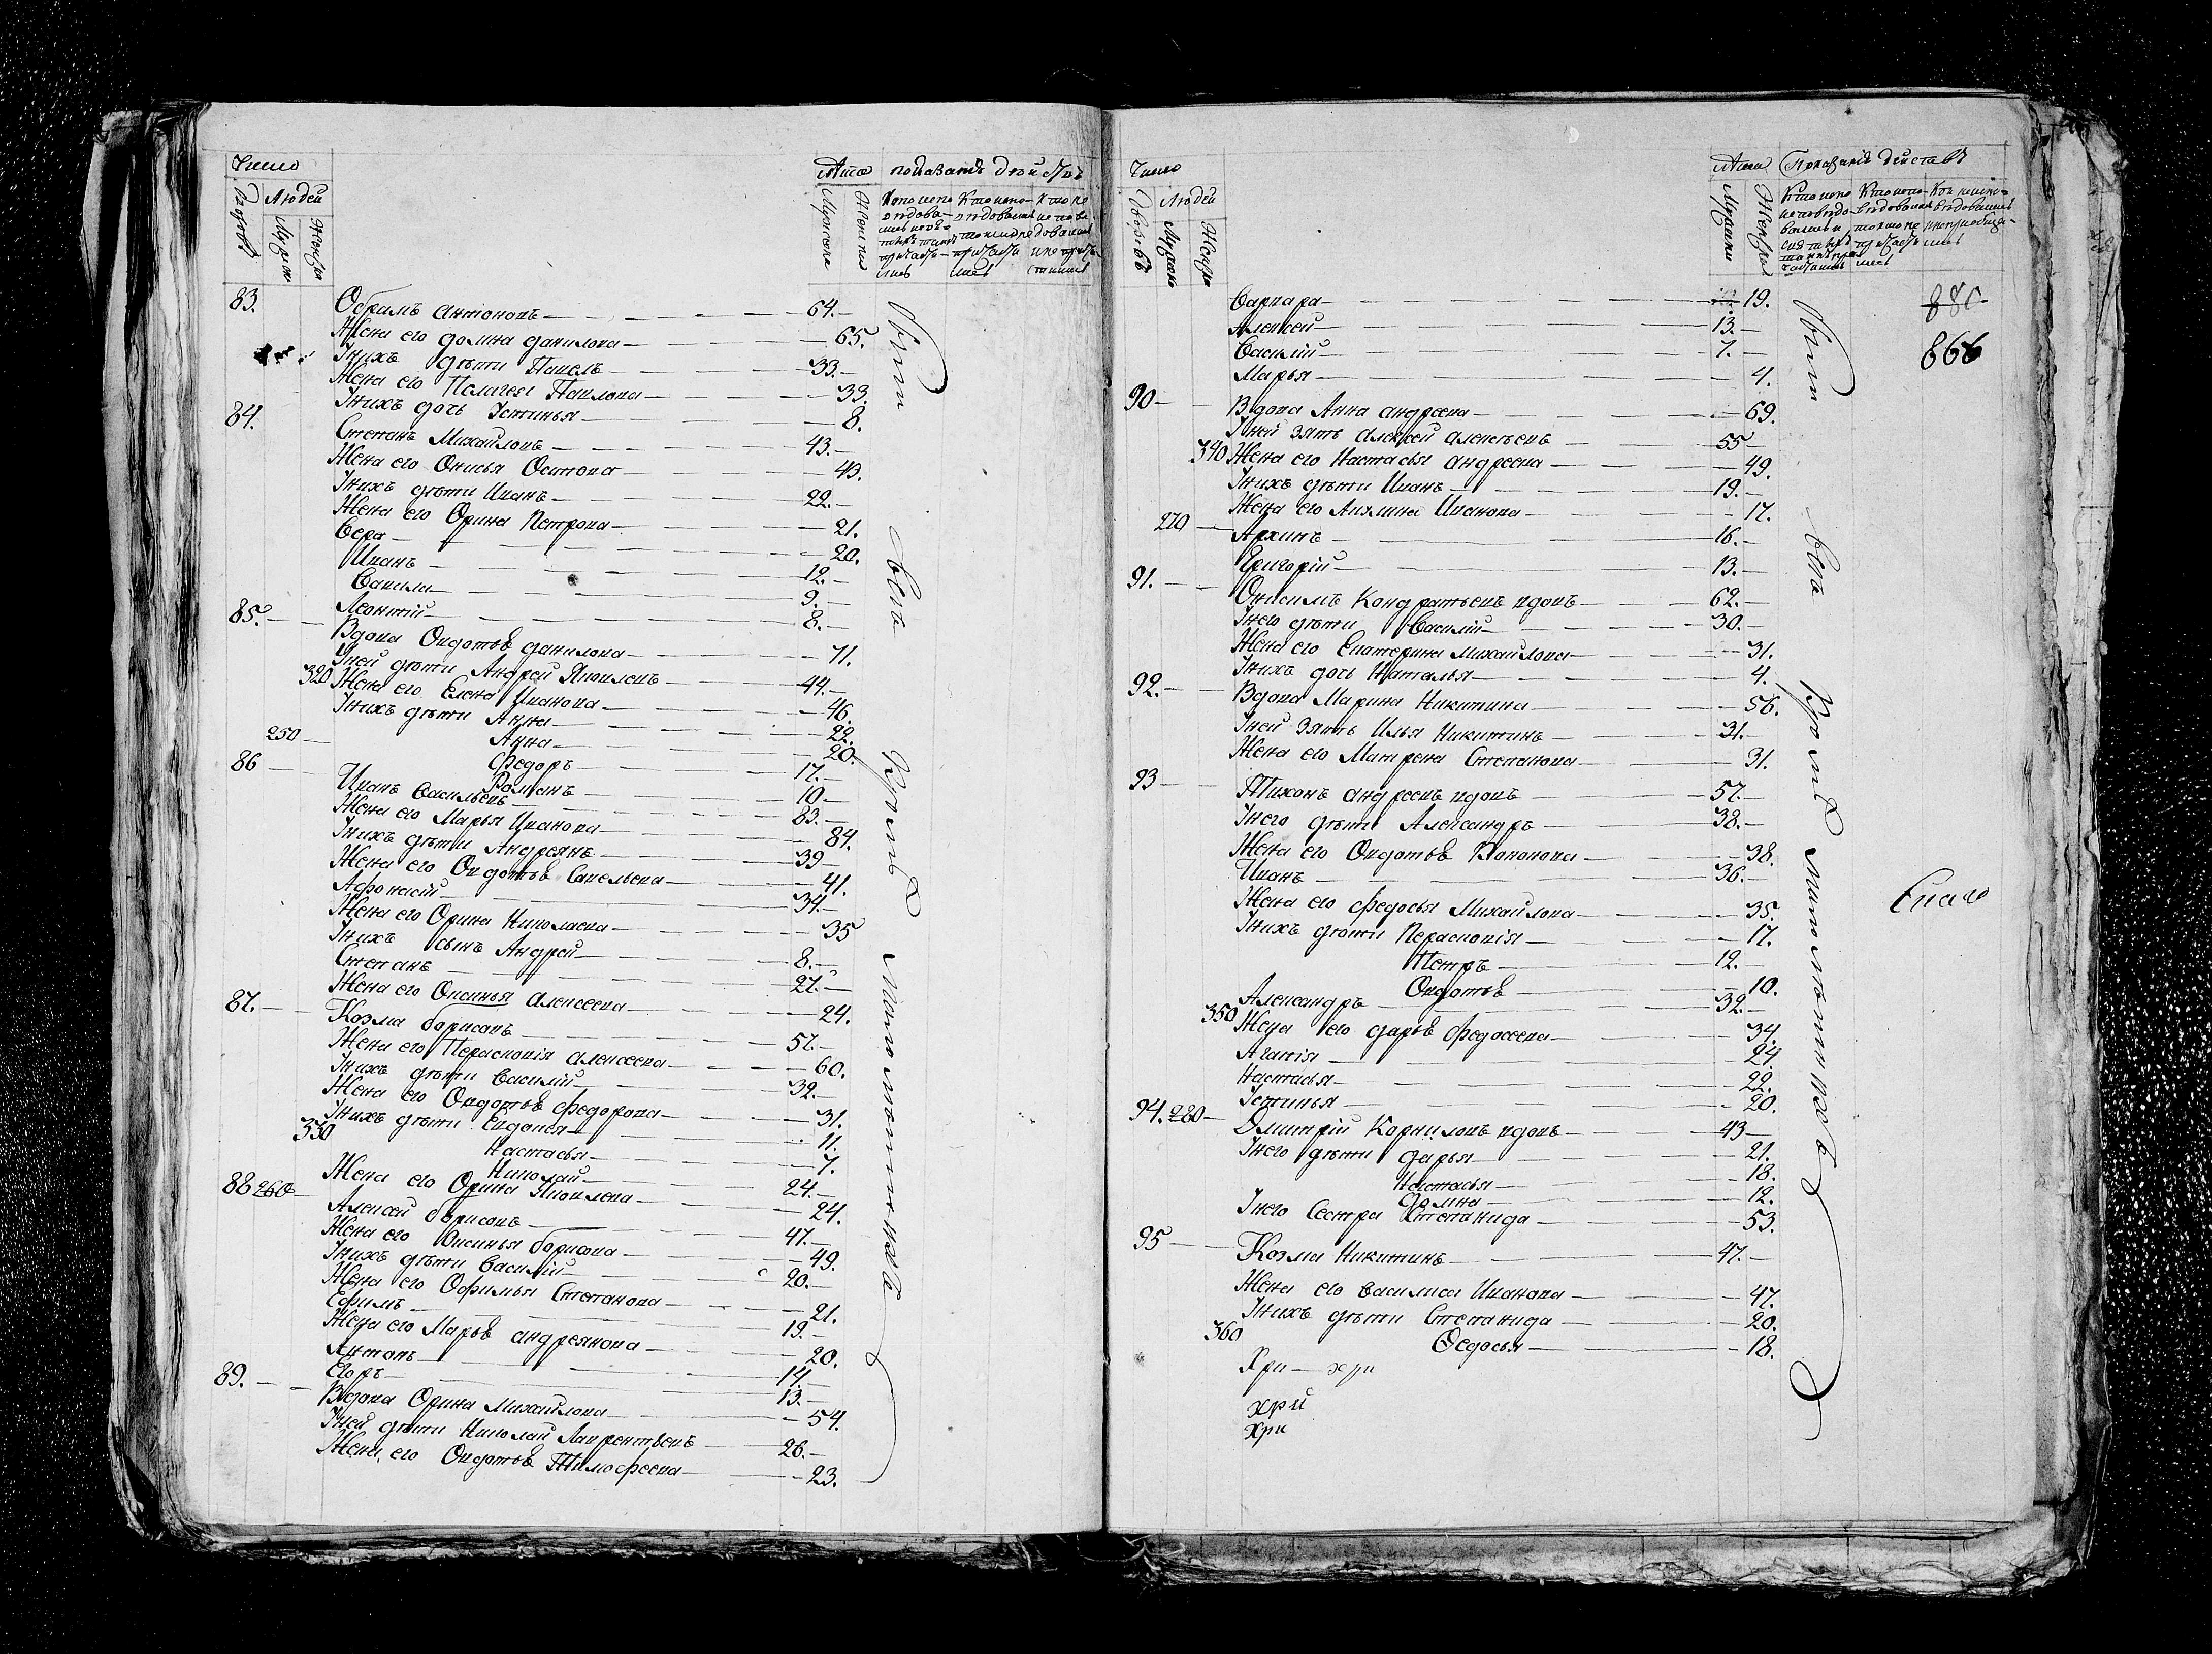 Число
Лѣта
Дворовъ
Людей
Мужска
Женска
83. Обрамъ Антоновъ 64.
Жена его Домна Данилова 65.
У нихъ дѣти Павелъ 33.
Жена его Пелагея Павлова 33.
У нихъ дочь Устинья 8.
84. Степанъ Михайловъ 43.
Жена его Онисья Осипова 43.
У нихъ дѣти Иванъ 22.
Жена его Орина Петрова 21.
Вера 20.
Иванъ 12.
Савила 9.
Леонтий 8.
85. Вдова Овдотьѣ Данилова 71.
У ней дѣти Андрей Яковлевъ 44.
320 Жена его Елена Иванова 46.
У нихъ дѣти Анна 22.
250 Анна 20.
Федоръ 17.
Романъ 10.
86 Иванъ Васильевъ 83.
Жена его Марья Иванова 84.
У нихъ дѣти Андреянъ 39
Жена его Овдотьѣ Савельева 41.
Афонасий 34.
Жена его Орина Николаева 35
У нихъ сынъ Андрей 8.
Степанъ 27.
Жена его Оксинья Алексеева 24.
87. Козма Борисовъ 57.
Жена его Перасковія Алексеева 60.
У нихъ дѣти Василій 32.
Жена его Овдотьѣ Федорова 31.
У нихъ дѣти Евдокея 11.
330 Настасья 7.
Николай 24.
88 260 Жена его Орина Яковлева 24.
Алексей Борисовъ 47.
Жена его Оксинья Борисова 49.
У нихъ дѣти Василій 20.
Жена его Офимья Степанова 21.
Ефимъ 19.
Жена его Марьѣ Андреянова 20.
Антонъ 14.
Егоръ 13.
89. Вдова Орина Михайлова 54.
У ней дѣти Николай Лаврентьевъ 26.
Жена его Овдотьѣ Тимофеева 23.
Оныи
вси
Число
Лѣта
Дворовъ
Людей
Мужска
Женска
Варвара 19.
Алексей 13.
Василий 7.
Марья 4.
880
866
90 Вдова Анна Андреева 69.
У ней зять Алексей Алексеевъ 55
340 Жена его Настасья Андреева 49.
У нихъ дѣти Иванъ 19.
Жена его Акулина Иванова 17.
270 Архипъ 16.
Григорій 13.
91. Онисимъ Кондратьевъ вдовъ 62.
У него дѣти Василій 30.
Жена его Екатерина Михайлова 31.
У нихъ дочь Наталья 4.
92. Вдова Марина Никитина 56.
У ней зять Илья Никитинъ 31.
Жена его Матрена Степанова 31.
93 Тихонъ Андреевъ вдовъ 57.
У него дѣти Александръ 38.
Жена его Овдотьѣ Кононова 38.
Иванъ 36.
Жена его Федосья Михайлова 35.
У нихъ дѣти Перасковія 17.
Петръ 12.
Овдотьѣ 10.
Александръ 32.
350 Жена его Дарьѣ Федосеева 34.
Агапія 24
Настасья 22.
Устинья 20.
94. 280 Дмитрій Корниловъ вдовъ 43
У него дѣти Дарья 21.
Настасья 18.
Домна 12.
У него сестра Степанида 53.
95 Козма Никитинъ 47.
Жена его Василиса Иванова 47.
У нихъ дѣти Степанида 20.
360 Ѳедосья 18.
Хри хри
хри
хри
Оныи
вси